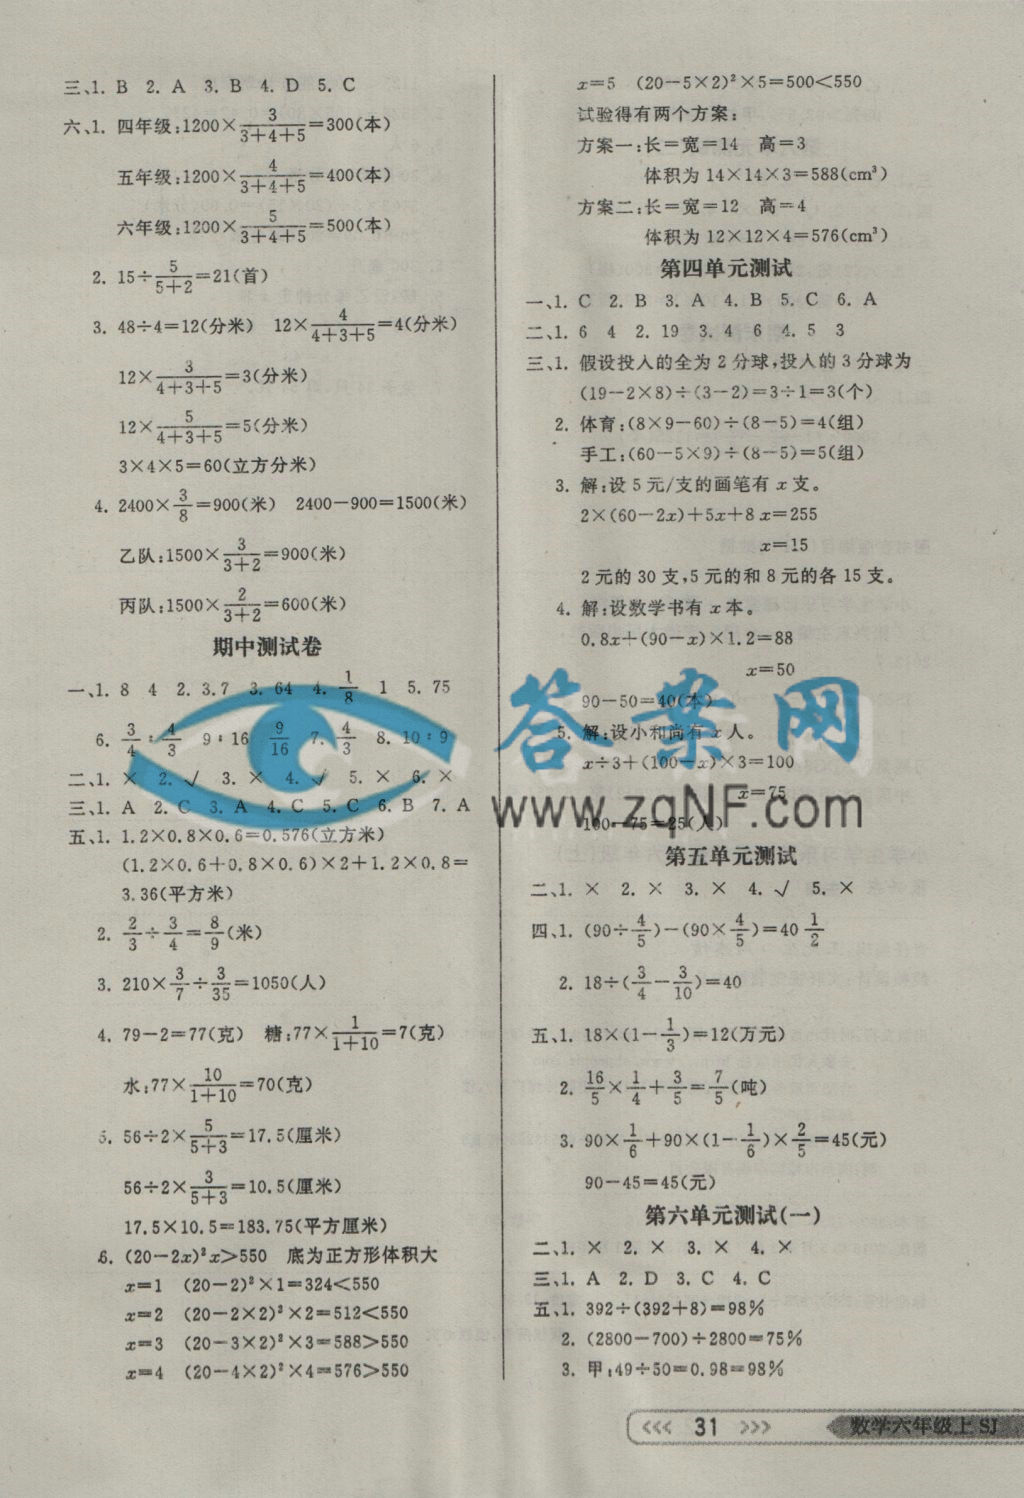 三、1. B 2. A 3. B 4. D 5. C
六、1. 四年级:1200×3/(3+4+5)=300(本)
五年级:1200×4/(3+4+5)=400(本)
六年级:1200×5/(3+4+5)=500(本)
2. 15÷5/(5+2)=21(首)
3. 48÷4=12(分米) 12×4/(4+3+5)=4(分米)
12×3/(4+3+5)=3(分米)
12×5/(4+3+5)=5(分米)
3×4×5=60(立方分米)
4. 2400×3/8=900(米) 2400-900=1500(米)
乙队:1500×3/(3+2)=900(米)
丙队:1500×2/(3+2)=600(米)
期中测试卷
一、1. 8 4 2. 3.7 3. 64 4. 1/8 1 5. 75
6. 3/4:4/3 9:16 9/16 7. 4/3 8. 10:9
二、1. × 2. √ 3. × 4. √ 5. × 6. ×
三、1. A 2. C 3. A 4. C 5. C 6. B 7. A
五、1. 1.2×0.8×0.6=0.576(立方米)
(1.2×0.6+0.8×0.6)×2+1.2×0.8=
3.36(平方米)
2. 2/3÷3/4=8/9(米)
3. 210×3/7÷3/35=1050(人)
4. 79-2=77(克) 糖:77×1/(1+10)=7(克)
水:77×10/(1+10)=70(克)
5. 56÷2×5/(5+3)=17.5(厘米)
56÷2×3/(5+3)=10.5(厘米)
17.5×10.5=183.75(平方厘米)
6. (20-2x)²x>550 底为正方形体积大
x=1 (20-2)²×1=324<550
x=2 (20-2×2)²×2=512<550
x=3 (20-3×2)²×3=588>550
x=4 (20-4×2)²×4=576>550
x=5 (20-5×2)²×5=500<550
试验得有两个方案:
方案一:长=宽=14 高=3
体积为14×14×3=588(cm³)
方案二:长=宽=12 高=4
体积为12×12×4=576(cm³)
第四单元测试
一、1. C 2. B 3. A 4. B 5. C 6. A
二、1. 6 4 2. 19 3. 4 6 4. 5 3
三、1. 假设投入的全为2分球,投入的3分球为
(19-2×8)÷(3-2)=3÷1=3(个)
2. 体育:(8×9-60)÷(8-5)=4(组)
手工:(60-5×9)÷(8-5)=5(组)
3. 解:设5元/支的画笔有x支。
2×(60-2x)+5x+8x=255
x=15
2元的30支,5元的和8元的各15支。
4. 解:设数学书有x本。
0.8x+(90-x)×1.2=88
x=50
90-50=40(本)
5. 解:设小和尚有x人。
x÷3+(100-x)×3=100
x=75
100-75=25(人)
第五单元测试
二、1. × 2. × 3. × 4. √ 5. ×
四、1. (90÷4/5)-(90×4/5)=40 1/2
2. 18÷(3/4-3/10)=40
五、1. 18×(1-1/3)=12(万元)
2. 16/5×1/4+3/5=7/5(吨)
3. 90×1/6+90×(1-1/6)×2/5=45(元)
90-45=45(元)
第六单元测试(一)
二、1. × 2. × 3. × 4. ×
三、1. A 2. D 3. C 4. C
五、1. 392÷(392+8)=98%
2. (2800-700)÷2800=75%
3. 甲:49÷50=0.98=98%
<<< 31 >>> 数学六年级上 SJ
答案网
www.zqNF.com